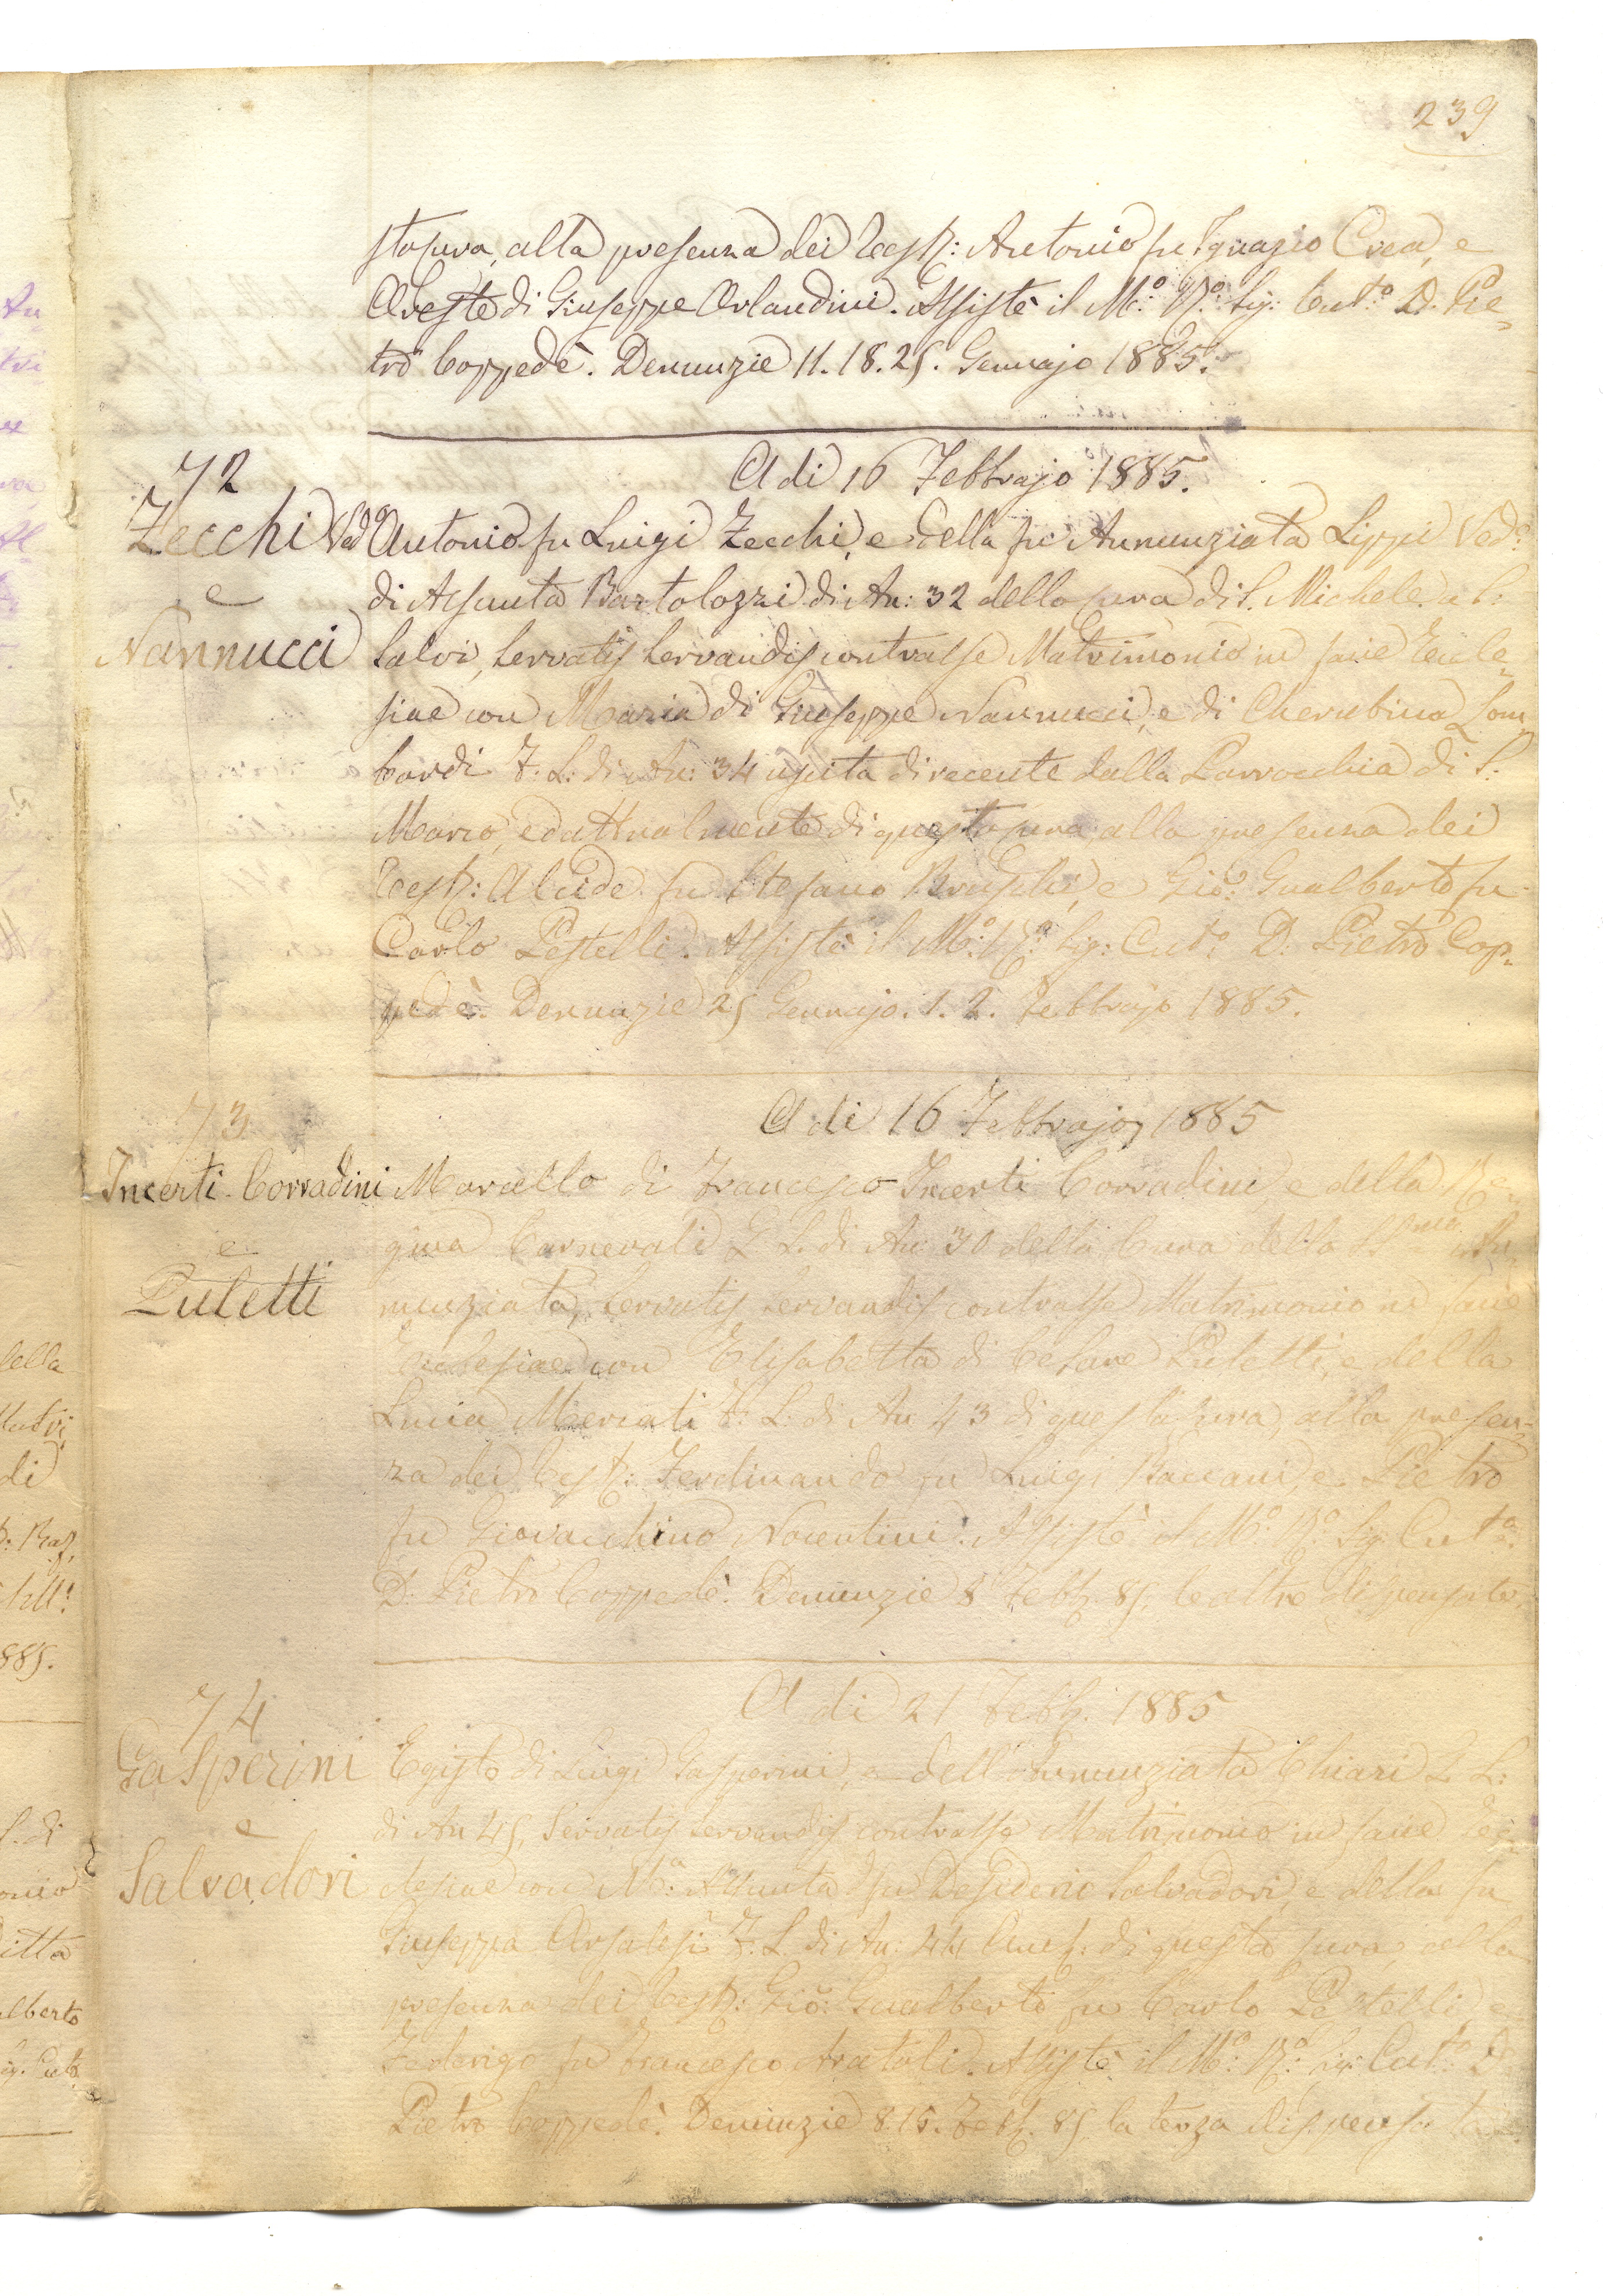 239
sta cura, alla presenza dei Test: Antonio fu Ignazio Crea, e
Oreste di Giuseppe Orlandini. Assistè il M.º R.º Sig: Cut.º D. Pie=
tro Coppedè. Denunzie 11. 18. 25. Gennajo 1885.
72
A di 16 Febbrajo 1885.
Zecchi Vedº
e
Nannucci
Antonio fu Luigi Zecchi, e della fu Annunziata Lippi Ved.º
di Assunta Bartolozzi di An: 32 dello cura di S. Michele a S:
Salvi, servatis servandis contrasse Matrimonio in facie Eccle=
siae con Maria di Giuseppe Nannucci, e di Cherubina Lom
bardi F: L: di An: 34 uscita di recente dalla Parrocchia di S:
Marco, ed attualmente di questa cura, alla presenza dei
Test: Alcide fu Stefano Bruschi, e Gio: Gualberto fu
Carlo Pestelli. Assistè il M.º R.º Sig: Cut.º D. Pietro Cop=
pedè. Denunzie 25 Gennajo. 1. 2. Febbrajo 1885.
73
A di 16 Febbrajo, 1885
Incerti-Corradini
e
Puletti
Marcello di Francesco Incerti Corradini, e della Re=
gina Carnevali L. L. di An: 30 della Cura della SS.ma An
nunziata, servatis servandis contrasse Matrimonio in facie
Ecclesiae con Elisabetta di Cesare Puletti, e della
Lucia Mercati F: L: di An 43 di questa cura, alla presen=
za dei Test: Ferdinando fu Luigi Baccani, e Pietro
fu Giovacchino Nocentini. Assistè il M.º R.º Sig: Cut.º
D. Pietro Coppedè. Denunzie 8 Febb. 85, le altre dispensate.
74
A di 21 Febb. 1885
Gasperini
e
Salvadori
Egisto di Luigi Gasperini, e dell'Annunziata Chiari L. L:
di An 45, Servatis servandis contrasse Matrimonio in facie Ecc=
clesiae con M.a Assunta fu Desiderio Salvadori, e della fu
Giuseppa F: L. di An: 44 di questa cura, alla
presenza dei Test: Gio: Gualberto fu Carlo Pestelli, e
Federigo fu Francesco. Assistè il M.º R.º Sig: Cut.º D
Pietro Coppedè. Denunzie 8. 15. Febb. 85 la terza dispensata